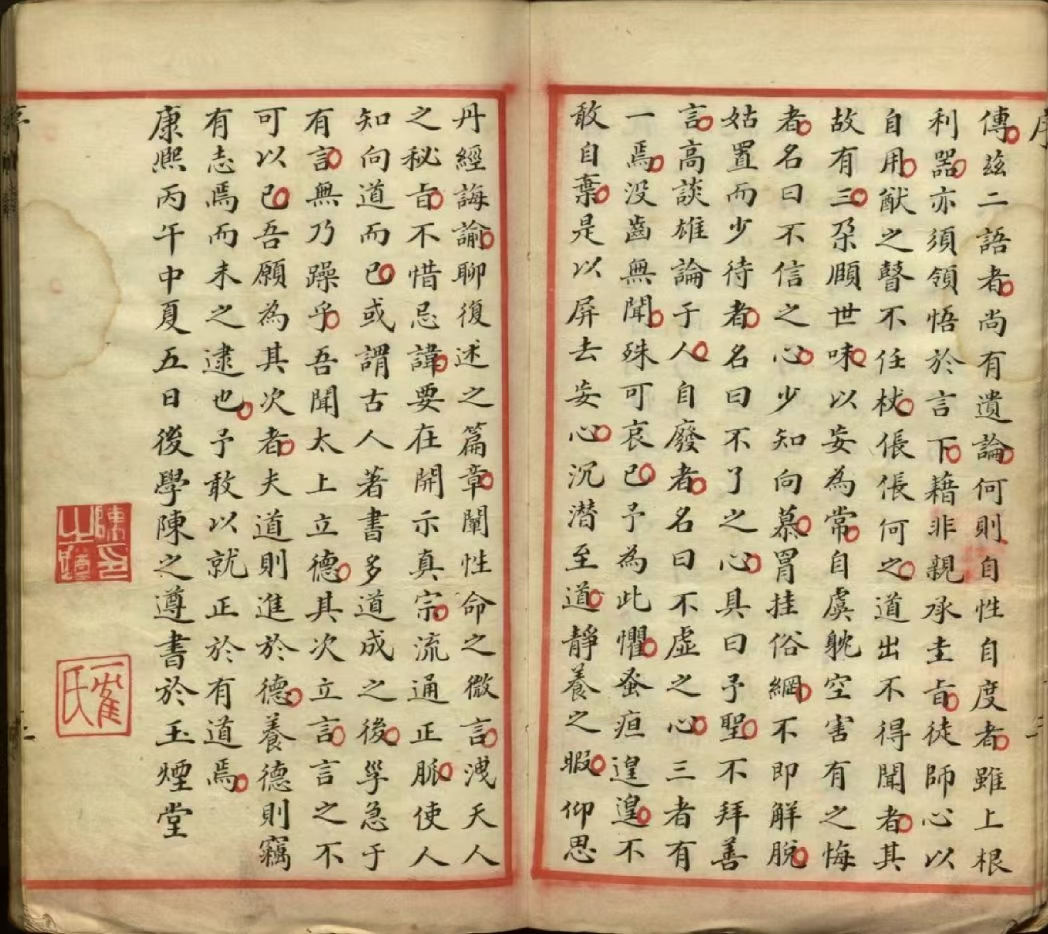 序
傳茲二語者尚有遺論何則自性自度者雖上根
利器亦須領悟於言下藉非親承圭旨徒師心以
自用猷之瞽不任杖倀倀何之道出不得聞者其
故有三朶頤世味以妄為常自虞躭空害有之悔
者名曰不信之心少知向慕罥挂俗網不即解脫
姑置而少待者名曰不了之心具曰予聖不拜善
言高談雄論于人自廢者名曰不虛之心三者有
一焉没齒無聞殊可哀已予為此懼蚤疸遑遑不
敢自棄是以屏去妄心沉潛至道靜養之暇仰思
丹經誨諭聊復述之篇章闡性命之微言洩天人
之秘旨不惜忌諱要在開示真宗流通正脈使人
知向道而已或謂古人著書多道成之後孚急于
有言無乃躁乎吾聞太上立德其次立言言之不
可以已吾願為其次者夫道則進於德養德則竊
有志焉而未之逮也予敢以就正於有道焉
康熙丙午中夏五日後學陳之遵書於玉煙堂